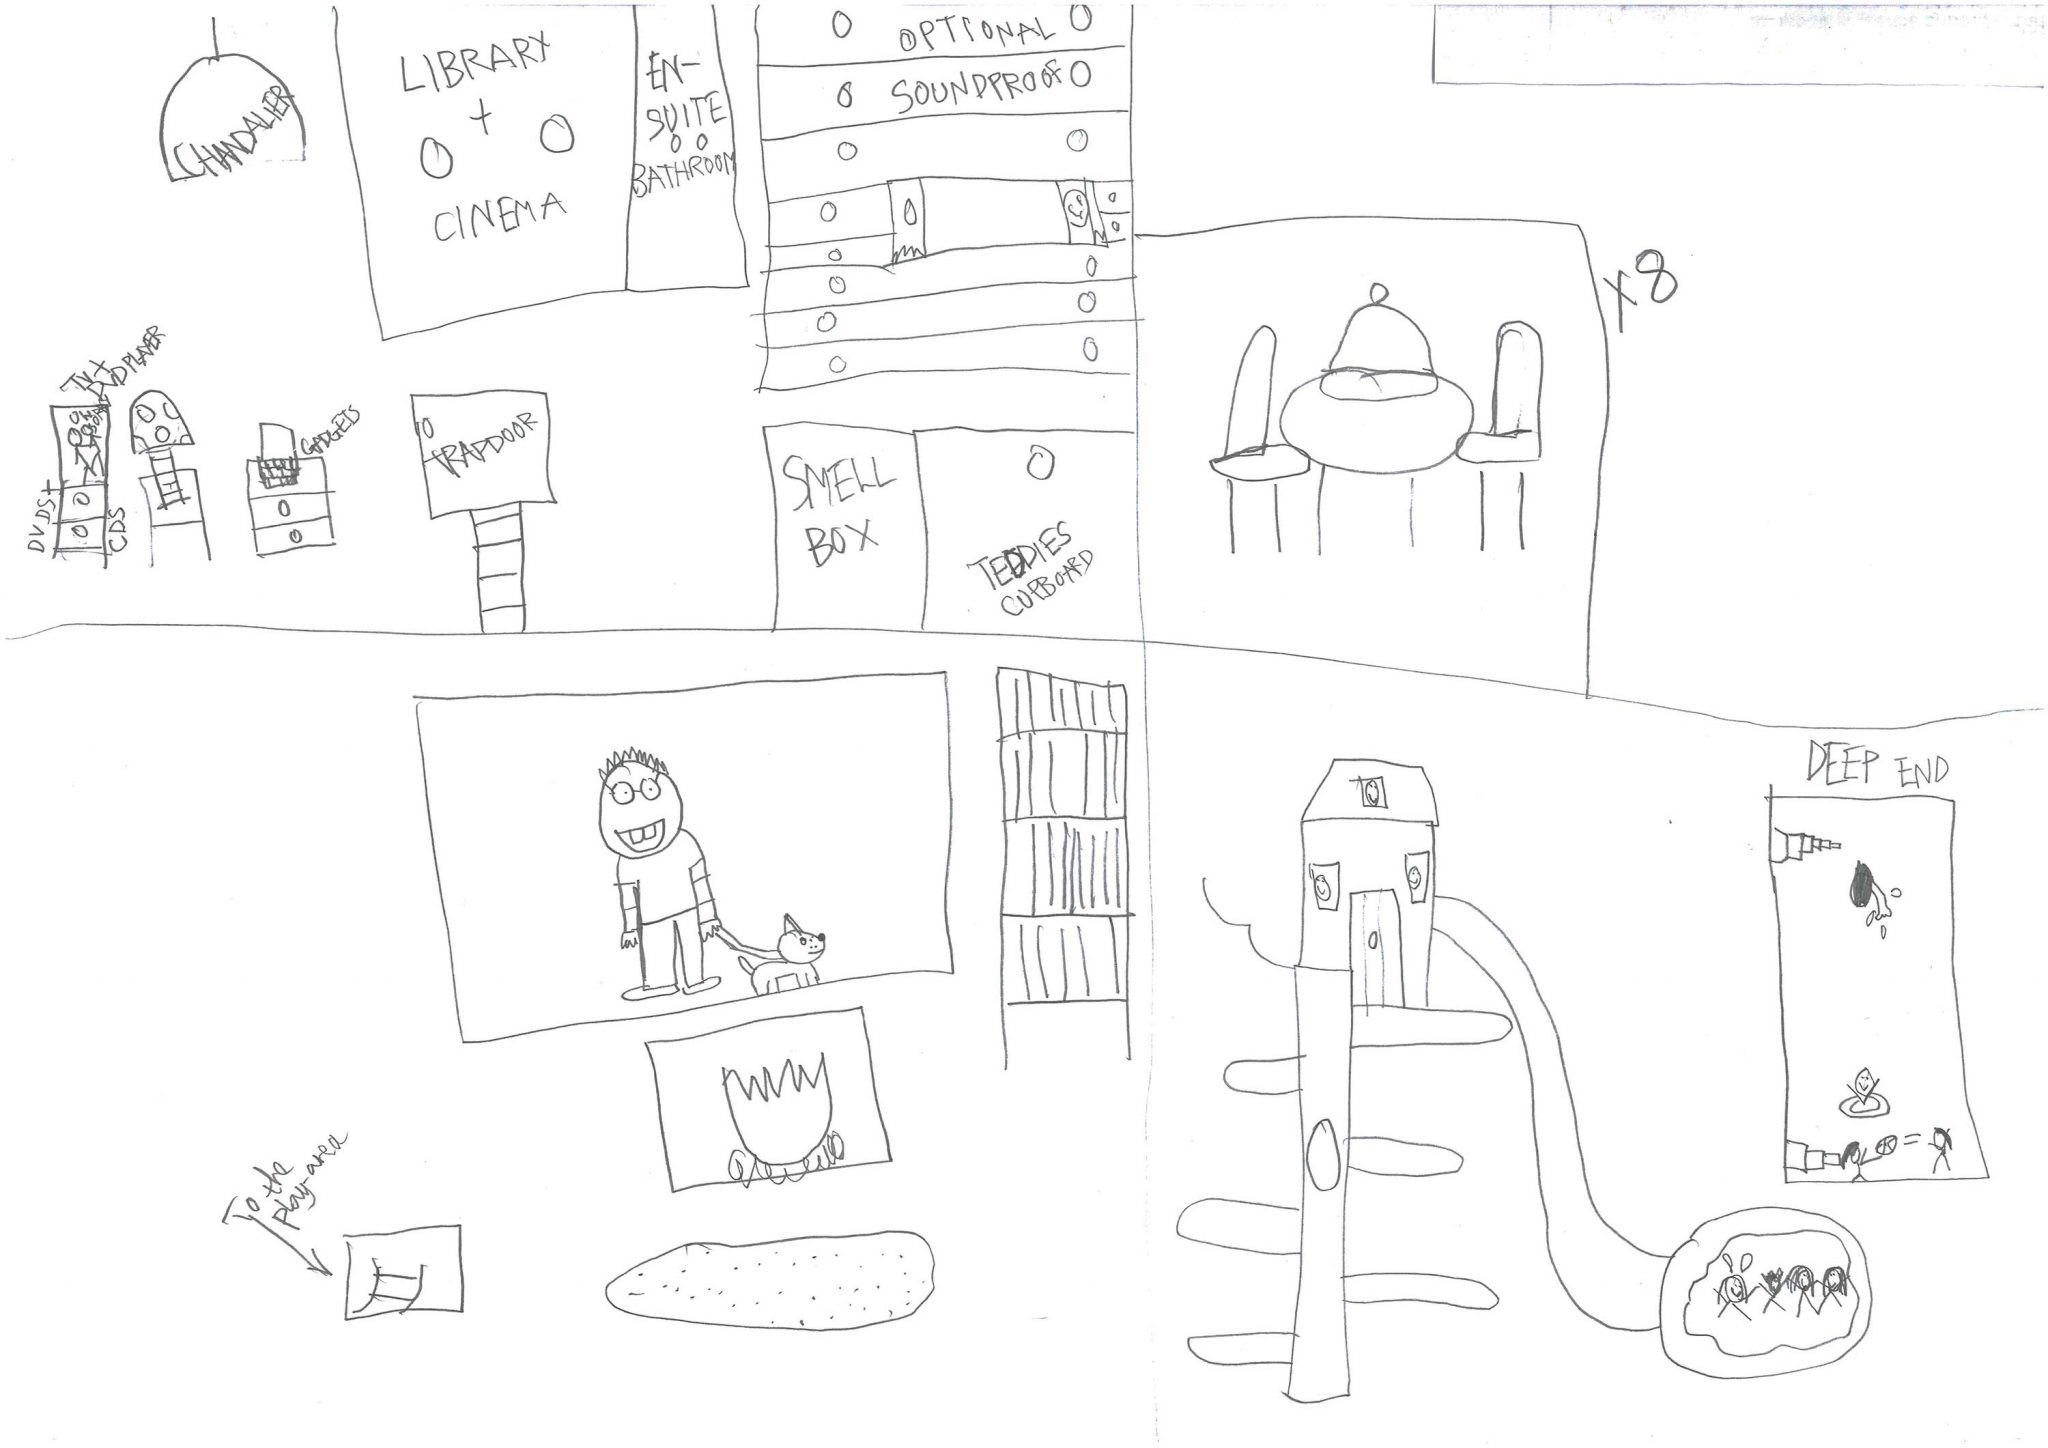 CHANDALIER
LIBRARY
+
CINEMA
EN-
SUITE
BATHROOM
OPTIONAL
SOUNDPROOF
x8
TV+
DVD PLAYER
DVDS+
CDS
GADGETS
TRAPDOOR
SMELL
BOX
TEDDIES
CUPBOARD
DEEP END
To the
play-area